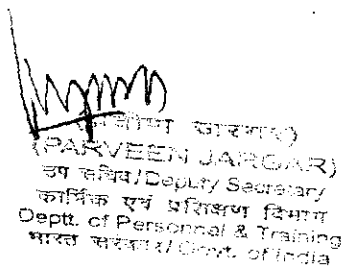 (PARVEEN JARGAR)
उप सचिव/Deputy Secretary
कार्मिक एवं प्रशिक्षण विभाग
Deptt. of Personnel & Training
भारत सरकार/Govt. of India